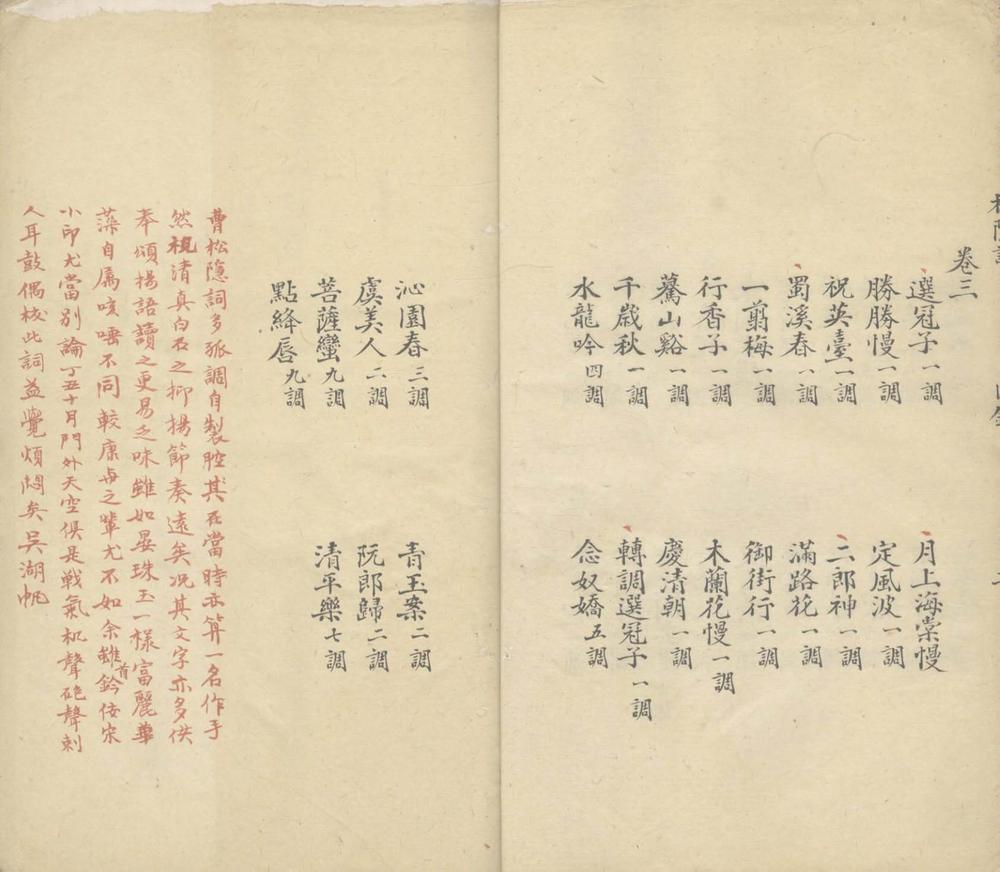 卷三
選冠子一調
月上海棠慢
勝勝慢一調
定風波一調
祝英臺一調
二郎神一調
蜀溪春一調
滿路花一調
一翦梅一調
御街行一調
行香子一調
木蘭花慢一調
驀山谿一調
慶清朝一調
千歲秋一調
轉調選冠子一調
水龍吟四調
念奴嬌五調
沁園春三調
青玉案二調
虞美人二調
阮郎歸二調
菩薩蠻九調
清平樂七調
點絳唇九調
曹松隱詞多孤調自製腔其在當時亦算一名作手
然視清真白石之抑揚節奏遠矣況其文字亦多供
奉頌揚語讀之更易乏味雖如晏珠玉一樣富麗華
藻自屬咳唾不同較康与之輩尤不如余雖首鈐佞宋
小印尤當別論丁丑十月門外天空俱是戰氣机聲砲聲刺
人耳鼓偶校此詞益覺煩悶矣吳湖帆